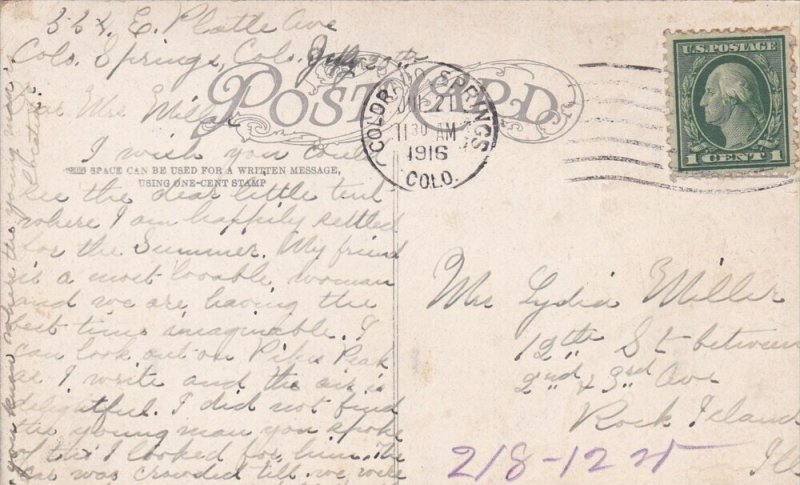 332 E. Platte Ave
Colo. Springs, Colo. July 20th
Dear Mrs Miller
POST CARD
I wish you could
THIS SPACE CAN BE USED FOR A WRITTEN MESSAGE,
USING ONE-CENT STAMP
see the dear little tent
where I am happily settled
for the Summer. My friend
is a most lovable woman
and we are having the
best time imaginable. I
can look out on Pikes Peak
as I write and the air is
delightful. I did not find
the young man you spoke
of tho I looked for him. The
car was crowded till we were
you know where the young man
COLORADO SPRINGS
11 30 AM
1916
COLO.
U.S. POSTAGE
1 CENT 1
Mrs Lydia Miller
12th St between
2nd & 3rd Ave
Rock Island
Ills
218-12 st